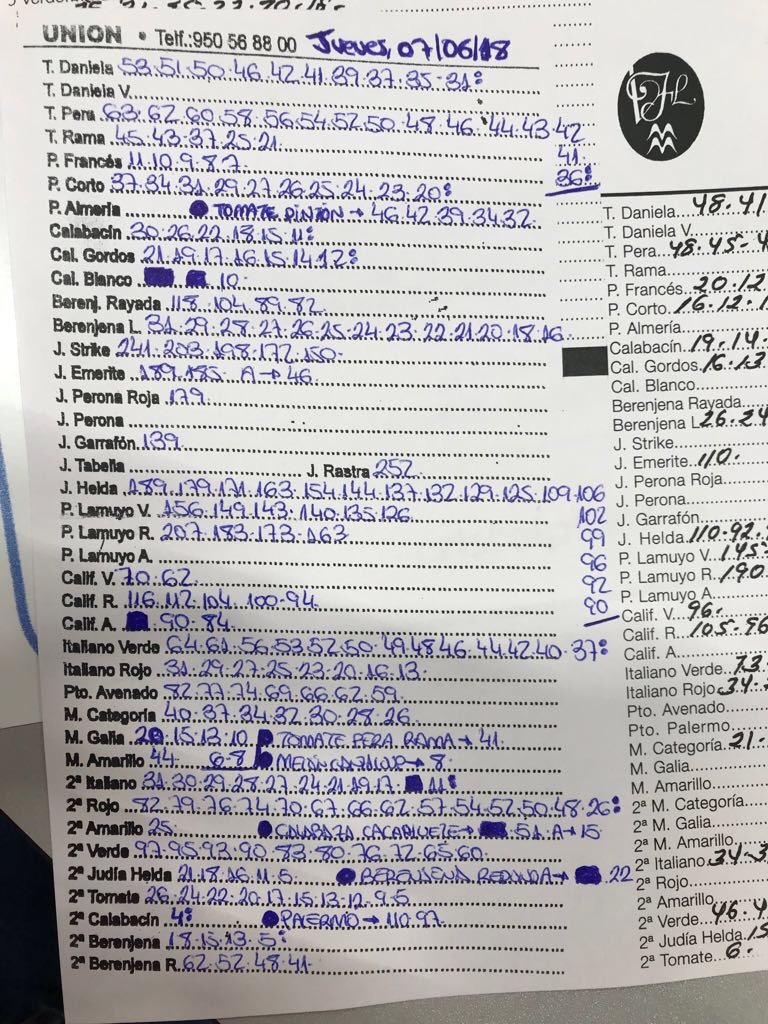 UNION • Telf.:950 56 88 00 Jueves, 07/06/18
T. Daniela 53.51.50.46.42.41.39.37.35.31:
T. Daniela V.
T. Pera 63.62.60.58.56.54.52.50.48.46.44.43.42
41.
36:
T. Rama 45.43.37.25.21
P. Francés 11.10.9.8.7
P. Corto 37.34.31.29.27.26.25.24.23.20:
P. Almería TOMATE PINTON → 46.42.39.34.32
Calabacín 30.26.22.18.15.11:
Cal. Gordos 21.19.17.16.15.14.12:
Cal. Blanco 10
Berenj. Rayada 118.104.89.82
Berenjena L. 31.29.28.27.26.25.24.23.22.21.20.18.16
J. Strike 241.203.198.172.150
J. Emerite 189.185 A→46
J. Perona Roja 179
J. Perona
J. Garrafón 139
J. Tabella J. Rastra 252
J. Helda 189.179.171.163.154.144.137.132.129.125.109.106
102
99
96
92
90
P. Lamuyo V. 156.149.143.140.135.126
P. Lamuyo R. 207.183.173.163
P. Lamuyo A.
Calif. V. 70.62
Calif. R. 116.112.104.100.94
Calif. A. 90.84
Italiano Verde 64.61.56.53.52.50.49.48.46.44.42.40.37:
Italiano Rojo 31.29.27.25.23.20.16.13
Pto. Avenado 82.77.74.69.66.62.59
M. Categoría 40.37.34.32.30.28.26
M. Galia 20.15.13.10 TOMATE PERA RAMA → 41
M. Amarillo 44 6.8 MELON → 8
2ª Italiano 31.30.29.28.27.24.21.19.17 11:
2ª Rojo 82.79.76.74.70.67.66.62.57.54.52.50.48.26:
2ª Amarillo 25 CALABAZA CACAHUETE → 51 A→15
2ª Verde 97.95.93.90.83.80.76.72.65.60
2ª Judía Helda 21.18.16.11.5 BERENJENA REDONDA → 22
2ª Tomate 26.24.22.20.17.15.13.12.9.5
2ª Calabacín 4: PALERMO → 110.97
2ª Berenjena 18.15.13.5:
2ª Berenjena R. 62.52.48.41
T. Daniela 48.41
T. Daniela V.
T. Pera 48.45
T. Rama
P. Francés 20.12
P. Corto 16.12
P. Almería
Calabacín 19.14
Cal. Gordos 16.13
Cal. Blanco
Berenjena Rayada
Berenjena L. 26.24
J. Strike
J. Emerite 110
J. Perona Roja
J. Perona
J. Garrafón
J. Helda 110.92
P. Lamuyo V. 145
P. Lamuyo R. 190
P. Lamuyo A.
Calif. V. 96
Calif. R. 105.96
Calif. A.
Italiano Verde 73
Italiano Rojo 34
Pto. Avenado
Pto. Palermo
M. Categoría 21
M. Galia
M. Amarillo
2ª M. Categoría
2ª M. Galia
2ª M. Amarillo
2ª Italiano 34
2ª Rojo
2ª Amarillo
2ª Verde 46
2ª Judía Helda 15
2ª Tomate 6